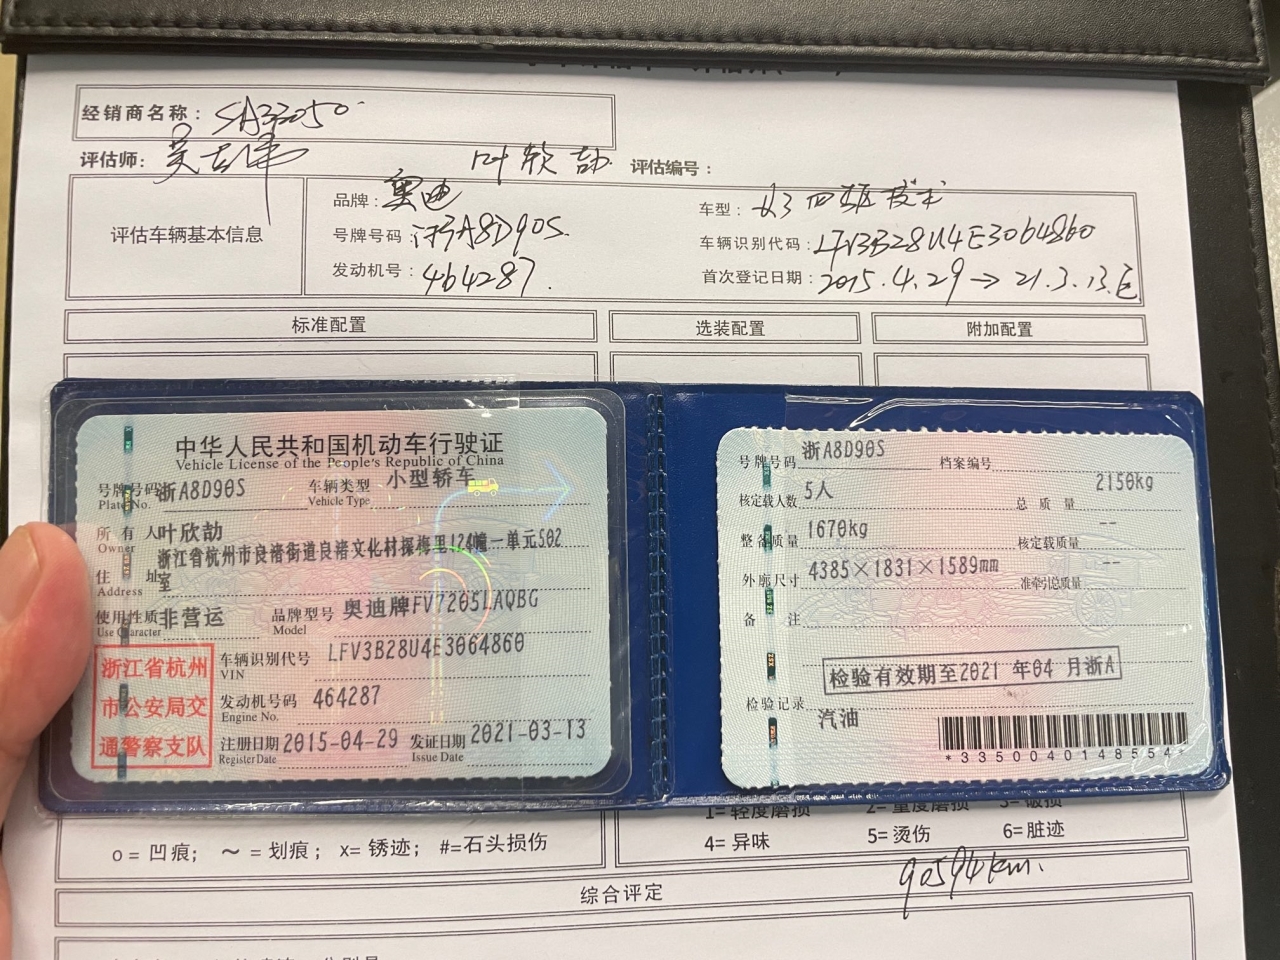 经销商名称: SA33050
评估师:
评估编号:
评估车辆基本信息
品牌: 奥迪
车型: 四驱技术
号牌号码: 浙A8D90S
车辆识别代码: LFV3B28U4E3064860
发动机号: 464287.
首次登记日期: 2015.4.29 → 21.3.13.
标准配置
选装配置
附加配置
中华人民共和国机动车行驶证
Vehicle License of the People's Republic of China
号牌号码 浙A8D90S 车辆类型 小型轿车
Plate No. Vehicle Type
所有人 叶欣劼
Owner
浙江省杭州市良渚街道良渚文化村探梅里124幢一单元502
住址 室
Address
使用性质 非营运 品牌型号 奥迪牌FV7205LAQBG
Use Character Model
浙江省杭州
市公安局交
通警察支队
车辆识别代号 LFV3B28U4E3064860
VIN
发动机号码 464287
Engine No.
注册日期 2015-04-29 发证日期 2021-03-13
Register Date Issue Date
号牌号码 浙A8D90S 档案编号
核定载人数 5人 总质量 2150kg
整备质量 1670kg 核定载质量 --
外廓尺寸 4385×1831×1589mm 准牵引总质量 --
备注
检验有效期至2021 年04 月浙A
检验记录
汽油
*3350040148554*
1= 轻度磨损 2= 重度磨损 3= 破损
o = 凹痕; ～ = 划痕; x= 锈迹; #=石头损伤
4= 异味 5= 烫伤 6= 脏迹
90594km.
综合评定